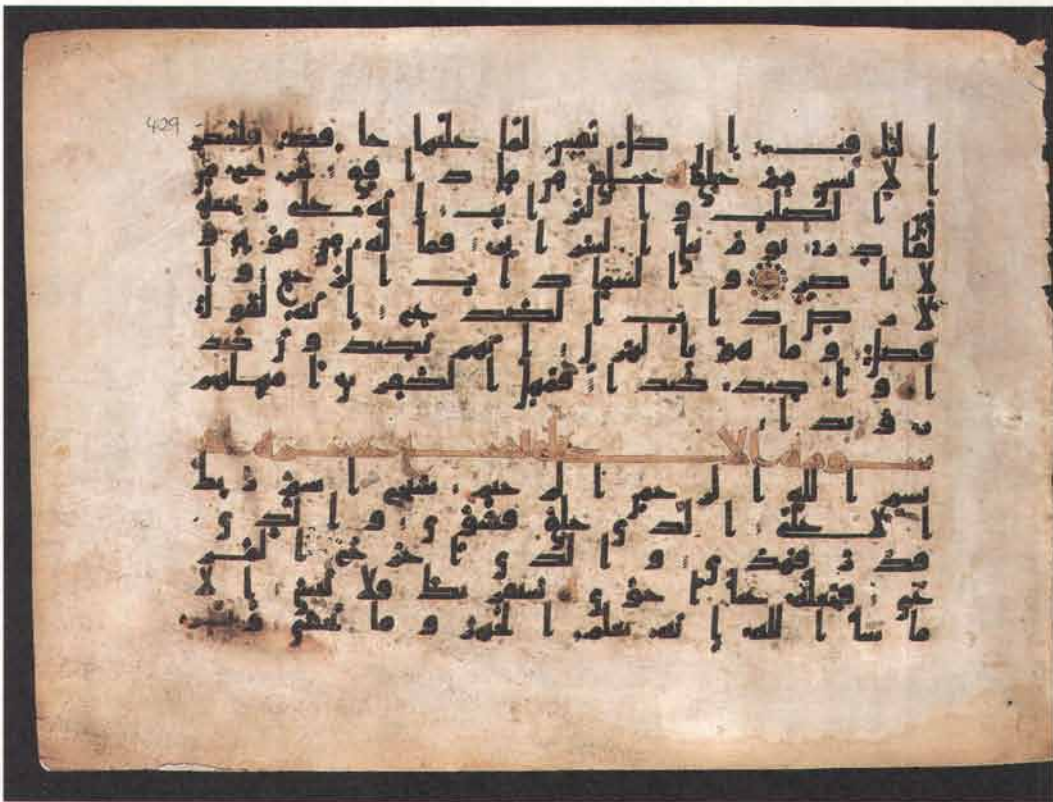 429
الثاقب ان كل نفس لما عليها حافظ فلينظر
الانسن مم خلق خلق من ما دافق يخرج من
بين الصلب والترائب انه على رجعه
لقادر يوم تبلى السرائر فما له من قوة و
لا ناصر والسما ذات الرجع وا
لارض ذات الصدع انه لقول
فصل وما هو بالهزل انهم يكيدون كيد
ا واكيد كيدا فمهل الكفرين امهلهم
رويدا
سورة الاعلى تسع عشره
بسم الله الرحمن الرحيم سبح اسم ربك
الاعلى الذي خلق فسوى والذي
قدر فهدى والذي اخرج المر
عى فجعله غثا احوى سنقرئك فلا تنسى الا
ما شا الله انه يعلم الجهر وما يخفى ونيسر